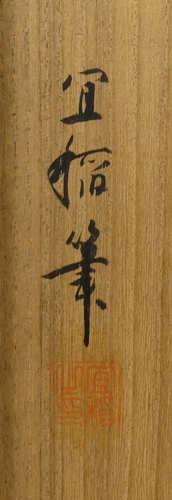 宜稲筆